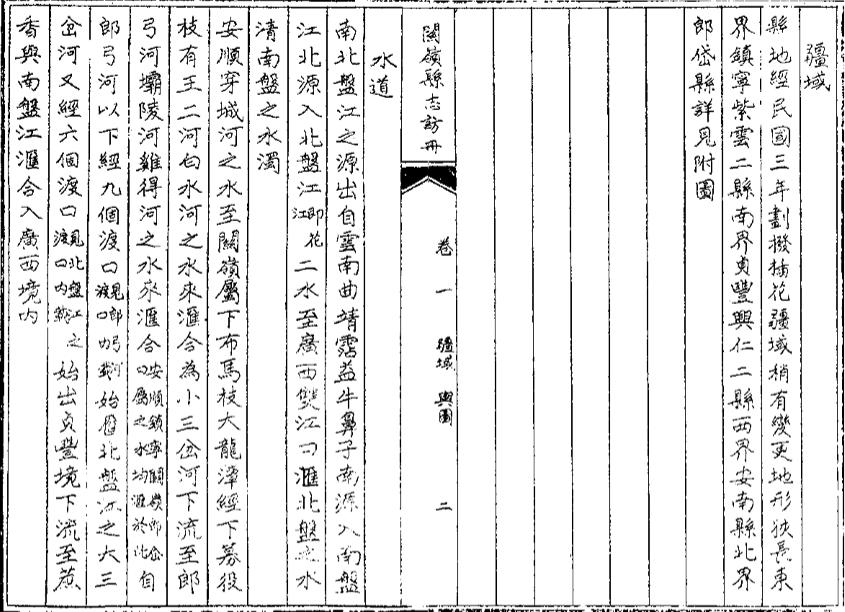 疆域
縣地經民國三年劃撥插花疆域稍有變更地形狹長東
界鎮寧紫雲二縣南界貞豐興仁二縣西界安南縣北界
郎岱縣詳見附圖
關嶺縣志訪冊
卷一 疆域 輿圖 二
水道
南北盤江之源出自雲南曲靖霑益牛鼻子南源入南盤
江北源入北盤江即花江二水至廣西雙江口滙北盤之水
清南盤之水濁
安順穿城河之水至關嶺屬下布馬枝大龍潭經下募役
枝有王二河白水河之水來滙合為小三岔河下流至郎
弓河壩陵河雞得河之水來滙合安順鎮寧關嶺郎岱口屬之水均滙於此自
郎弓河以下經九個渡口見郎弓河渡口始匯北盤江之大三
岔河又經六個渡口見北盤江之渡口內始出貞豐境下流至蔗
香與南盤江滙合入廣西境內